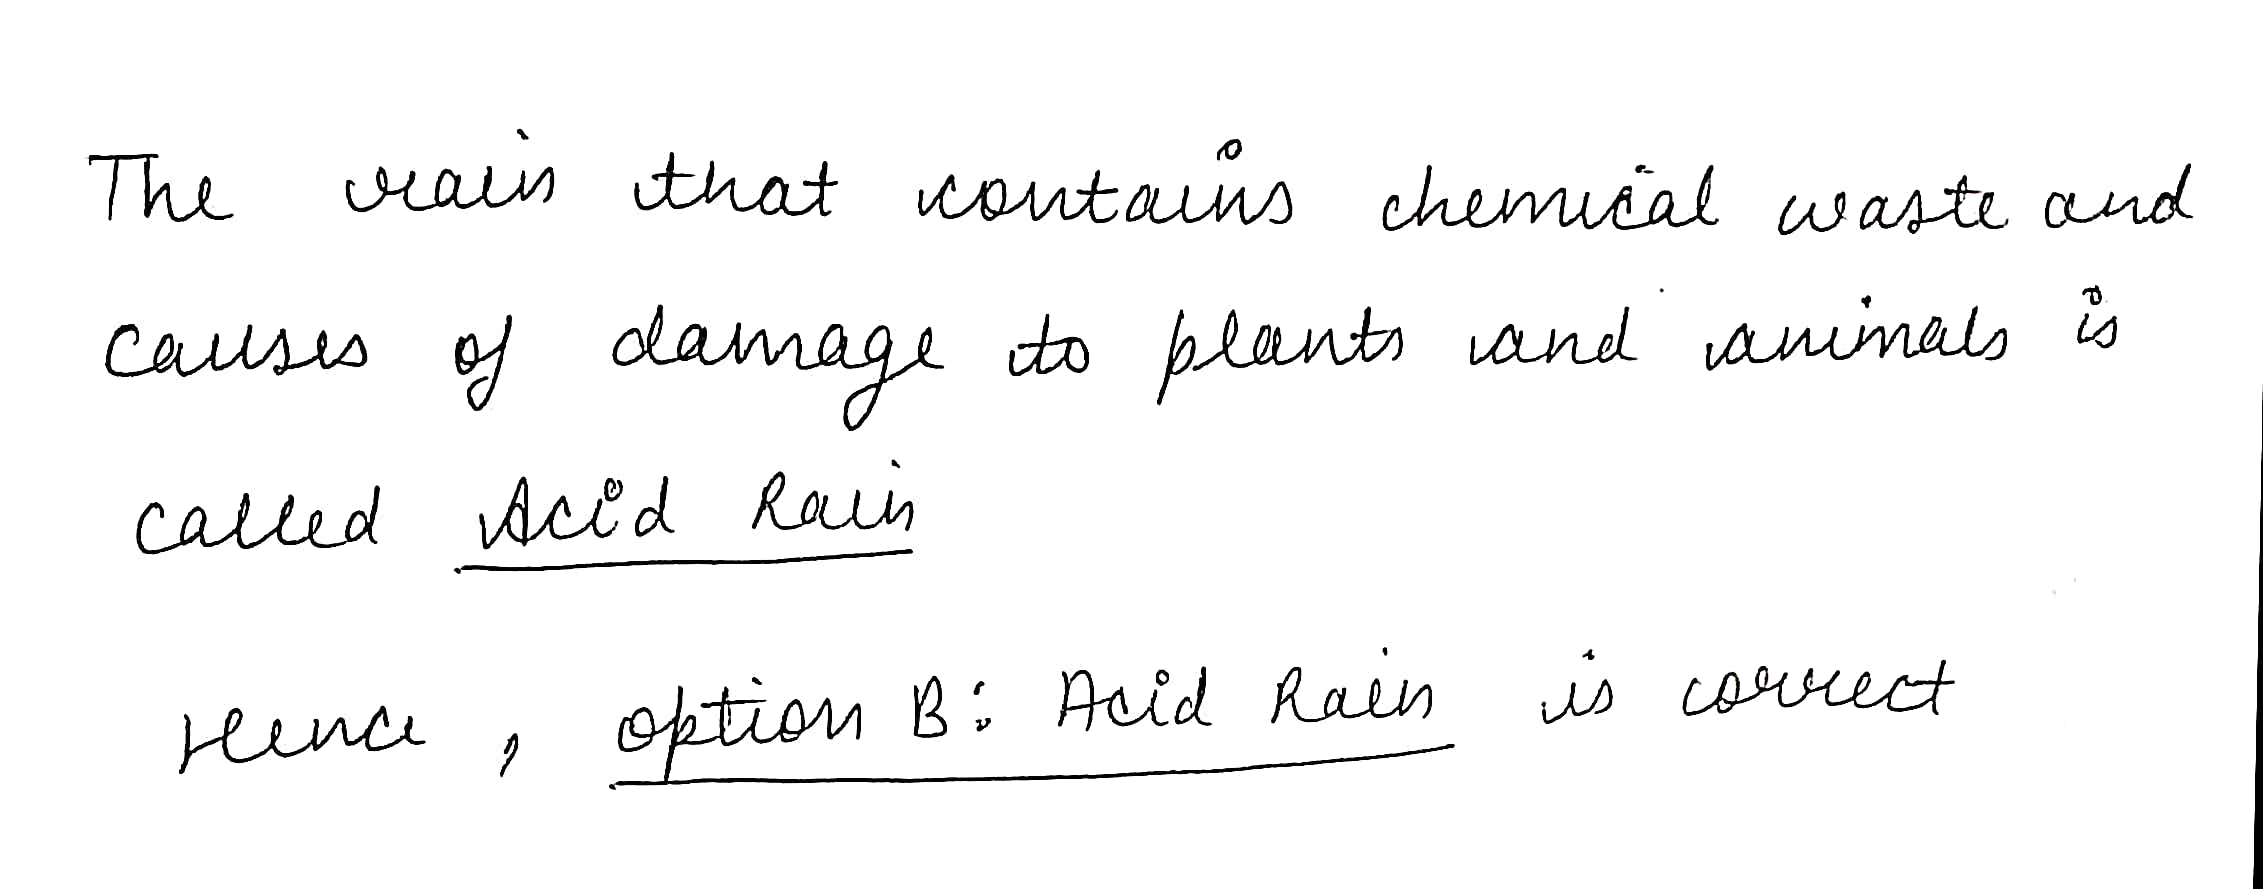 The rain that contains chemical waste and
causes of damage to plants and animals is
called Acid Rain
Hence, option B: Acid Rain is correct